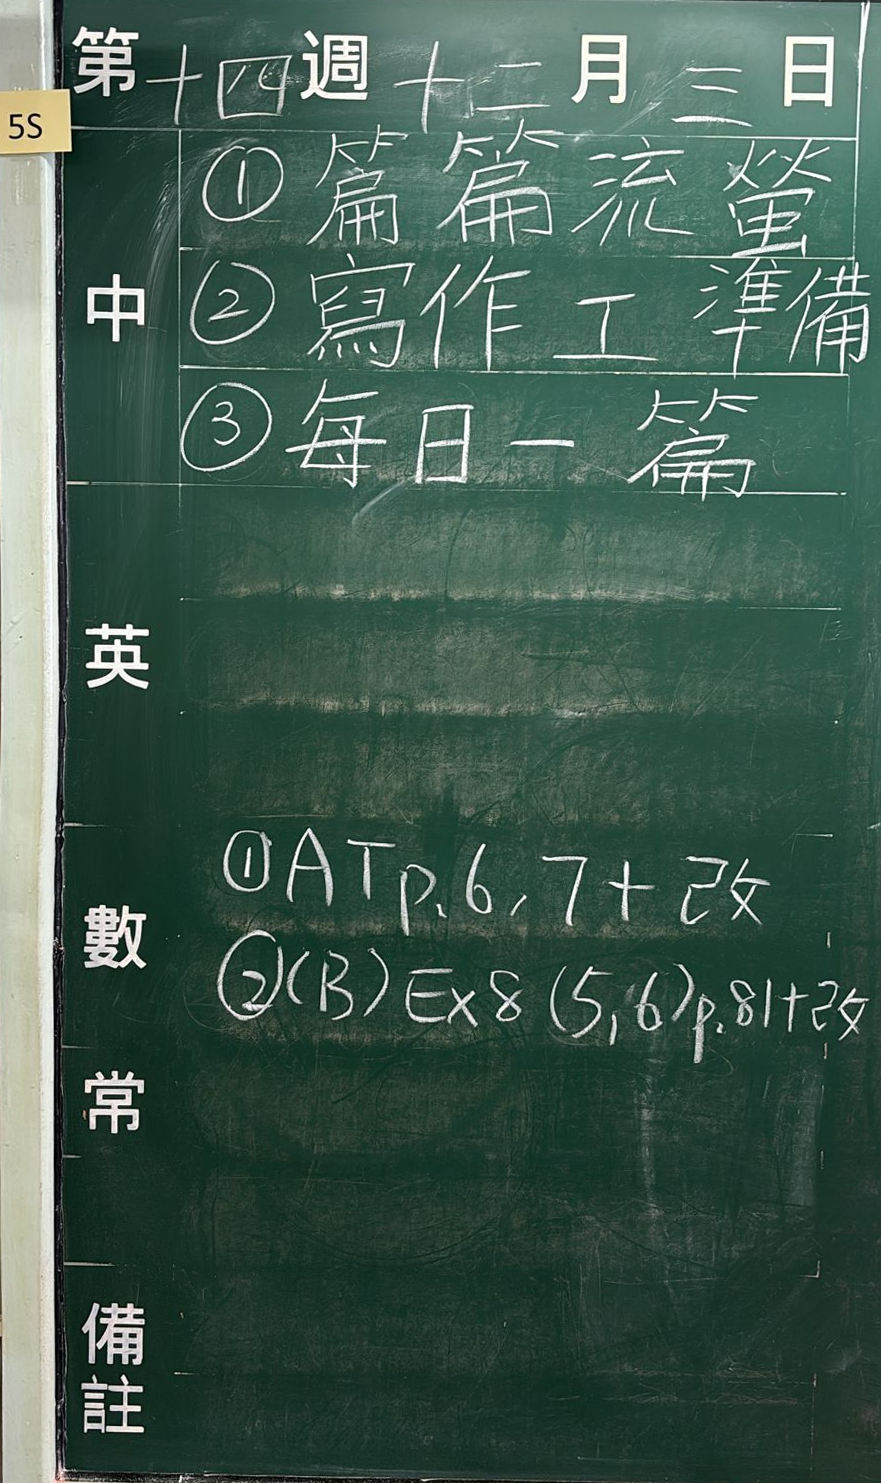 第十四週十二月三日
5S
中
①篇篇流螢
②寫作工準備
③每日一篇
英
數
①AT p.6,7+改
②(B) Ex8 (5,6) p.81+改
常
備註